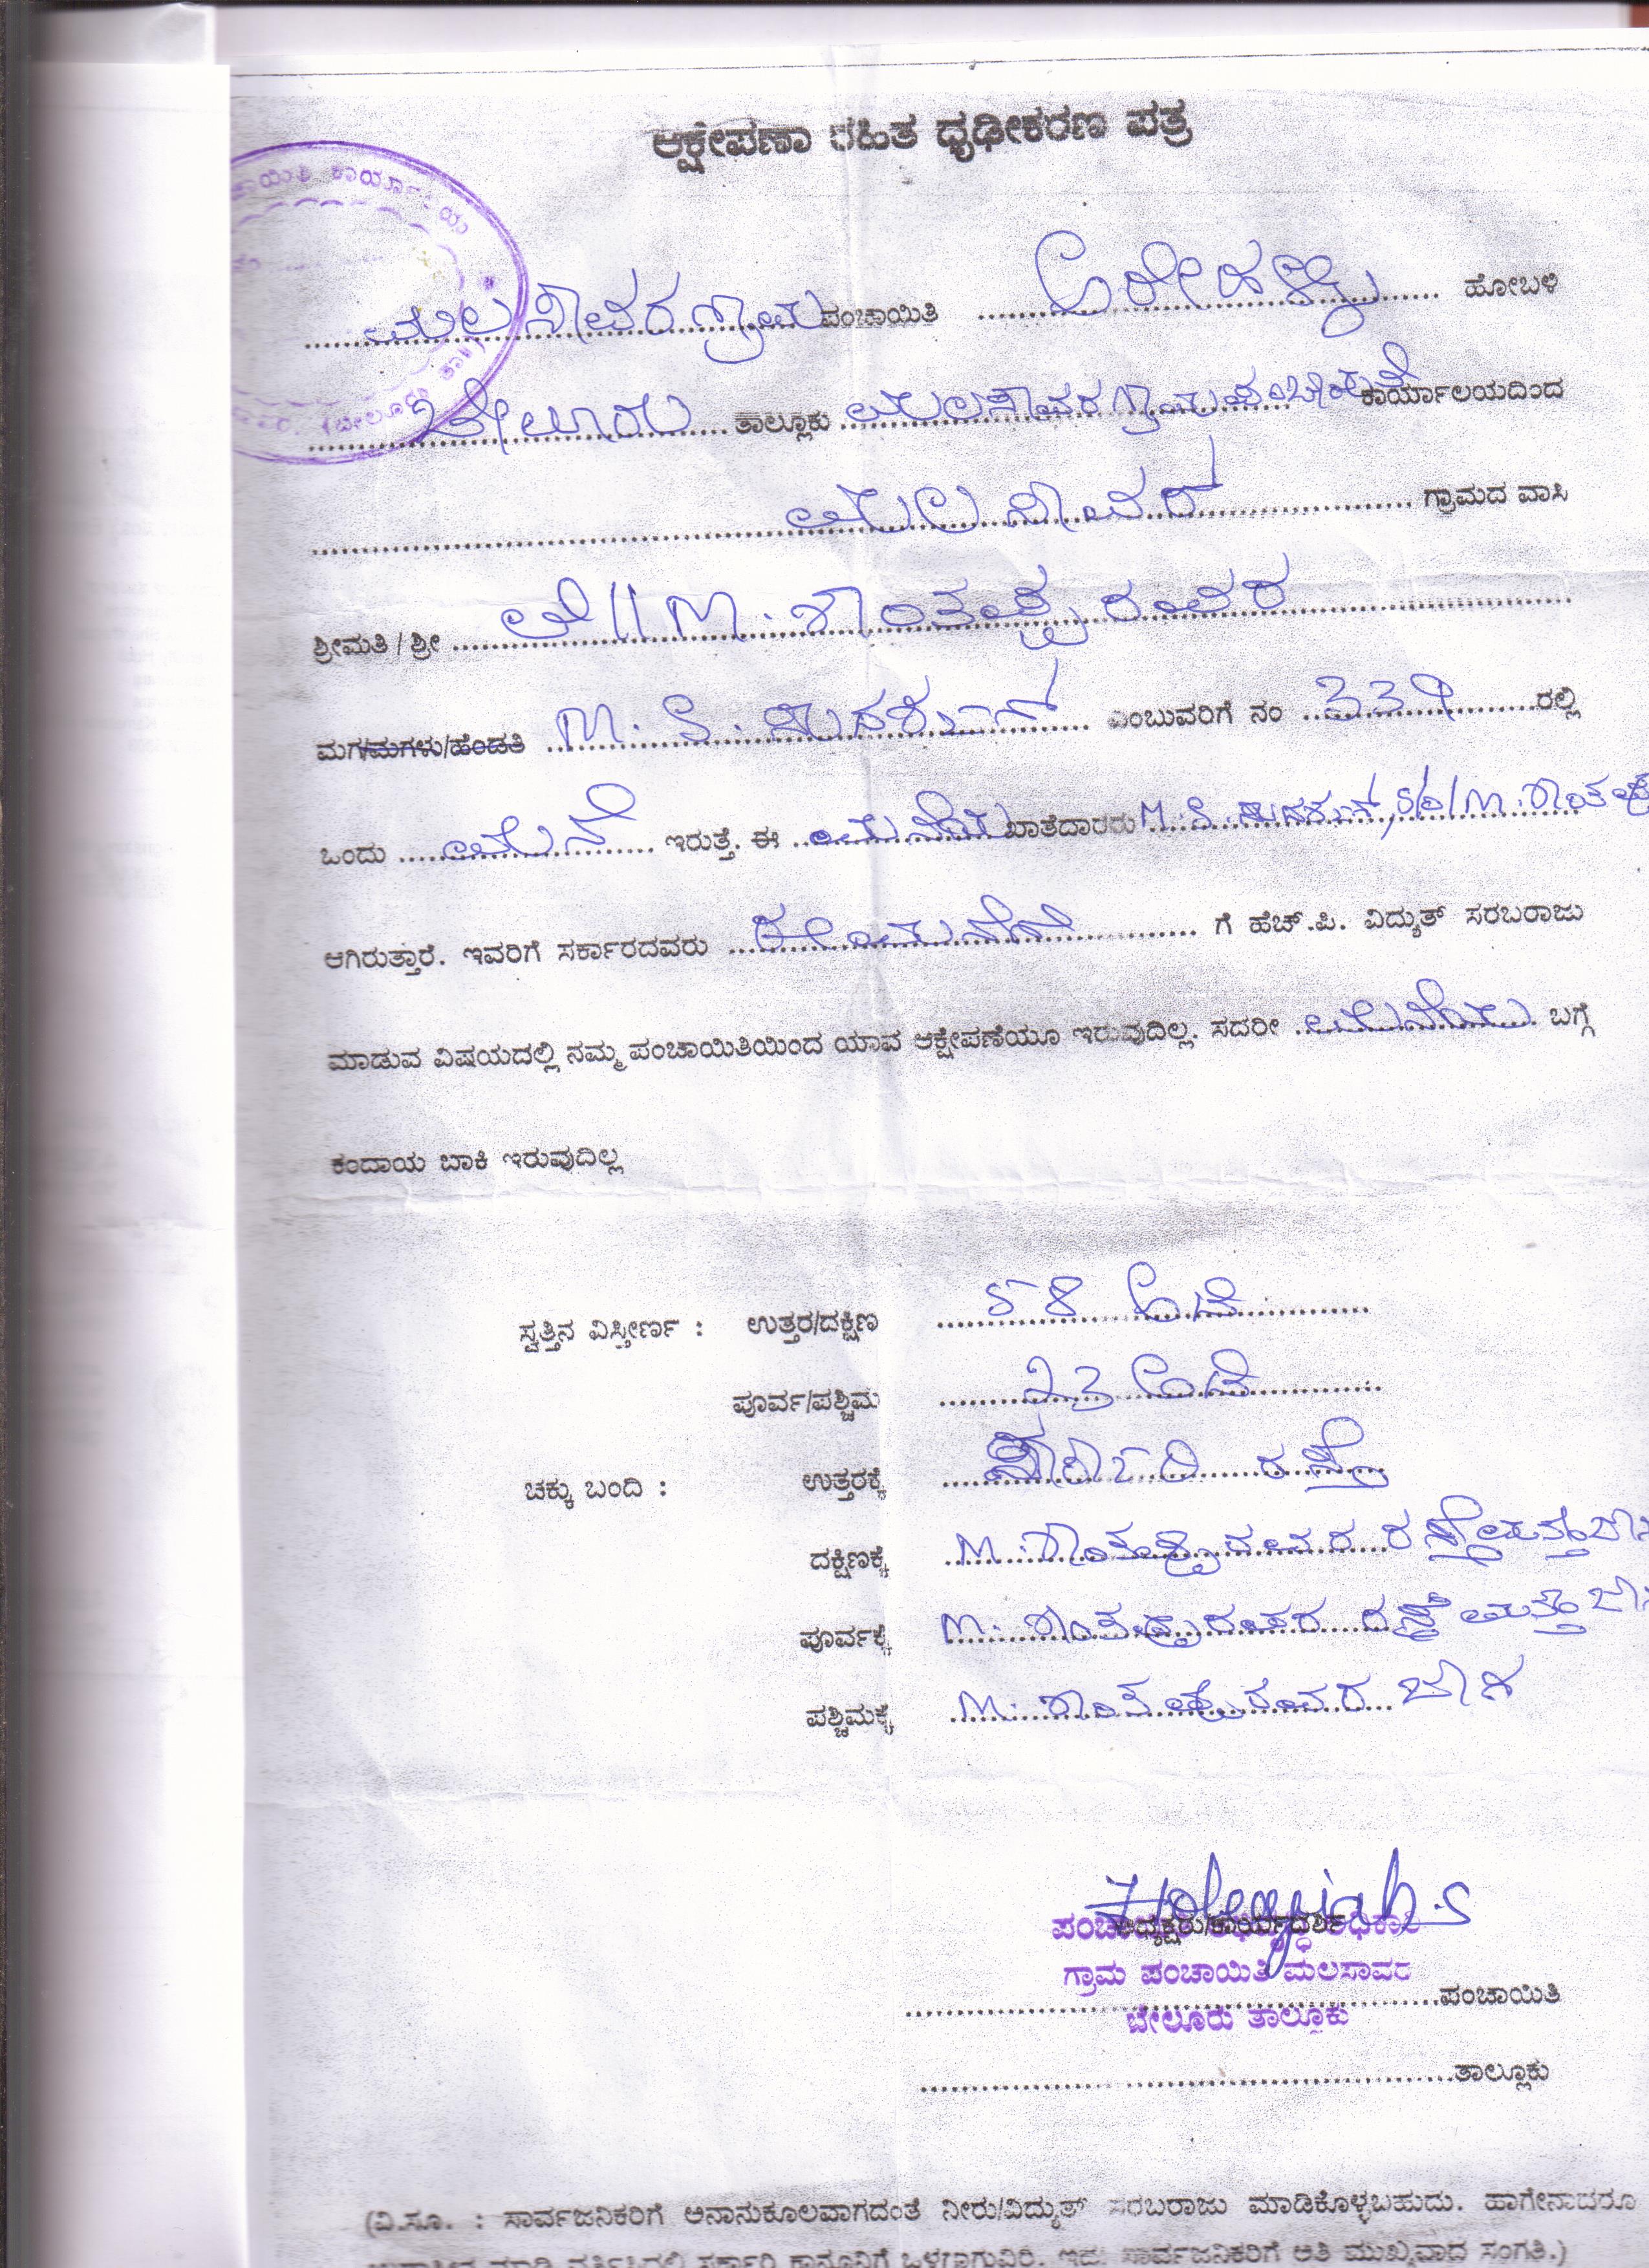 ಆಕ್ಷೇಪಣಾ ರಹಿತ ಧೃಢೀಕರಣ ಪತ್ರ
ಮಲಸಾವರ ಗ್ರಾಮ ಪಂಚಾಯಿತಿ ಅರೇಹಳ್ಳಿ ಹೋಬಳಿ
ಬೇಲೂರು ತಾಲ್ಲೂಕು ಮಲಸಾವರ ಗ್ರಾಮ ಪಂಚಾಯಿತಿ ಕಾರ್ಯಾಲಯದಿಂದ
ಮಲಸಾವರ ಗ್ರಾಮದ ವಾಸಿ
ಶ್ರೀಮತಿ / ಶ್ರೀ ಲೇ|| M. ಶಾಂತಪ್ಪರವರ
ಮಗ/ಮಗಳು/ಹೆಂಡತಿ M. S. ಎಂಬುವರಿಗೆ ನಂ ರಲ್ಲಿ
ಒಂದು ಮನೆ ಇರುತ್ತೆ. ಈ ಮನೆಯ ಖಾತೆದಾರರು M. S. S/o/ M. ಶಾಂತಪ್ಪ
ಆಗಿರುತ್ತಾರೆ. ಇವರಿಗೆ ಸರ್ಕಾರದವರು ಈ ಮನೆಗೆ ಗೆ ಹೆಚ್.ಪಿ. ವಿದ್ಯುತ್ ಸರಬರಾಜು
ಮಾಡುವ ವಿಷಯದಲ್ಲಿ ನಮ್ಮ ಪಂಚಾಯಿತಿಯಿಂದ ಯಾವ ಆಕ್ಷೇಪಣೆಯೂ ಇರುವುದಿಲ್ಲ. ಸದರೀ ಮನೆಯ ಬಗ್ಗೆ
ಕಂದಾಯ ಬಾಕಿ ಇರುವುದಿಲ್ಲ
ಸ್ವತ್ತಿನ ವಿಸ್ತೀರ್ಣ : ಉತ್ತರ/ದಕ್ಷಿಣ ಅಡಿ
ಪೂರ್ವ/ಪಶ್ಚಿಮ ೨೩ ಅಡಿ
ಚಕ್ಕು ಬಂದಿ : ಉತ್ತರಕ್ಕೆ ಸರ್ಕಾರಿ ರಸ್ತೆ
ದಕ್ಷಿಣಕ್ಕೆ M. ಶಾಂತಪ್ಪರವರ ರಸ್ತೆ ಮತ್ತು
ಪೂರ್ವಕ್ಕೆ M. ಶಾಂತಪ್ಪರವರ ರಸ್ತೆ ಮತ್ತು
ಪಶ್ಚಿಮಕ್ಕೆ M. ಶಾಂತಪ್ಪರವರ ಜಾಗ
ಅಧ್ಯಕ್ಷರು/ಕಾರ್ಯದರ್ಶಿ
ಗ್ರಾಮ ಪಂಚಾಯಿತಿ ಮಲಸಾವರ
ಪಂಚಾಯಿತಿ
ಬೇಲೂರು ತಾಲ್ಲೂಕು
ತಾಲ್ಲೂಕು
(ವಿ.ಸೂ. : ಸಾರ್ವಜನಿಕರಿಗೆ ಅನಾನುಕೂಲವಾಗದಂತೆ ನೀರು/ವಿದ್ಯುತ್ ಸರಬರಾಜು ಮಾಡಿಕೊಳ್ಳಬಹುದು. ಹಾಗೇನಾದರೂ
ಸರ್ಕಾರಿ ಕಾನೂನಿಗೆ ಒಳಗಾಗುವಿರಿ. ಇದು ಸಾರ್ವಜನಿಕರಿಗೆ ಅತಿ ಮುಖ್ಯವಾದ ಸಂಗತಿ.)